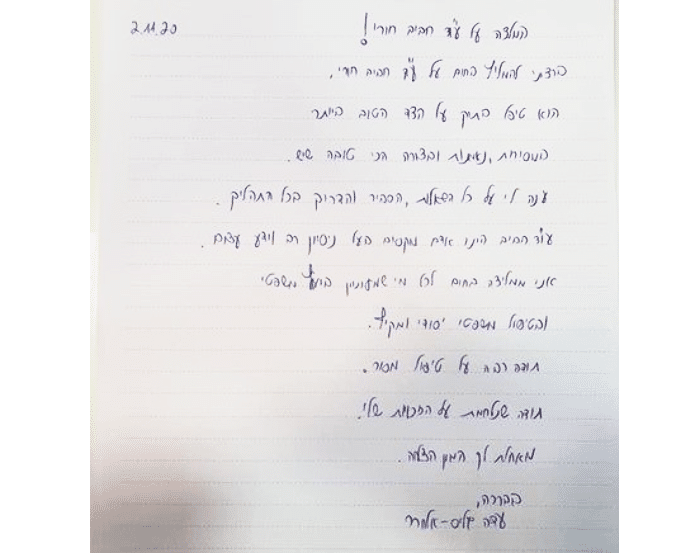 2.11.20
המלצה על עו"ד חביב חורי!
ברצוני להמליץ בחום על עו"ד חביב חורי.
הוא טיפל בתיק על הצד הטוב ביותר
במסירות, נעימות ובצורה הכי טובה שיש.
ענה לי על כל השאלות, הסביר והדריך בכל התהליך.
עו"ד חביב הינו אדם מקסים בעל ניסיון רב וידע עצום.
אני ממליצה בחום לכל מי שמעוניין ביעוץ משפטי
ובטיפול משפטי יסודי ומקיף.
תודה רבה על טיפול מסור.
תודה שנלחמת על הזכויות שלי.
מאחלת לך המון הצלחה.
בברכה,
עדה